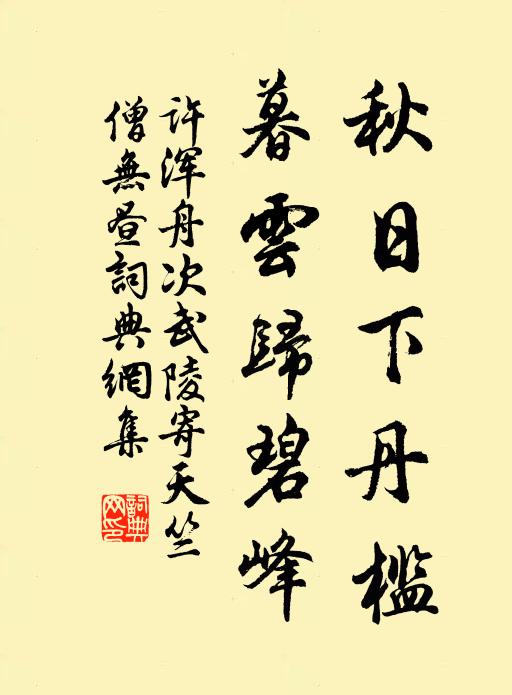 秋日下丹檻
暮雲歸碧峰
许浑舟次武陵寄天竺
僧無昼詞典網集
詞典網印